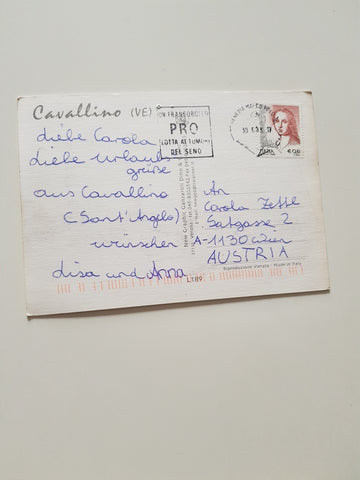 Cavallino (VE)
ON FRANCOBOLLO
PRO
LOTTA AI TUMORI
DEL SENO
VENEZIA
ITALIA
Liebe Carola
Liebe Urlaubs
grüße
aus Cavallino
(Sant'Angelo)
wünschen
Lisa und Anna
An
Carola Zettl
Satzgasse 2
A-1130 Wien
AUSTRIA
Riproduzione vietata - Made in Italy
L189